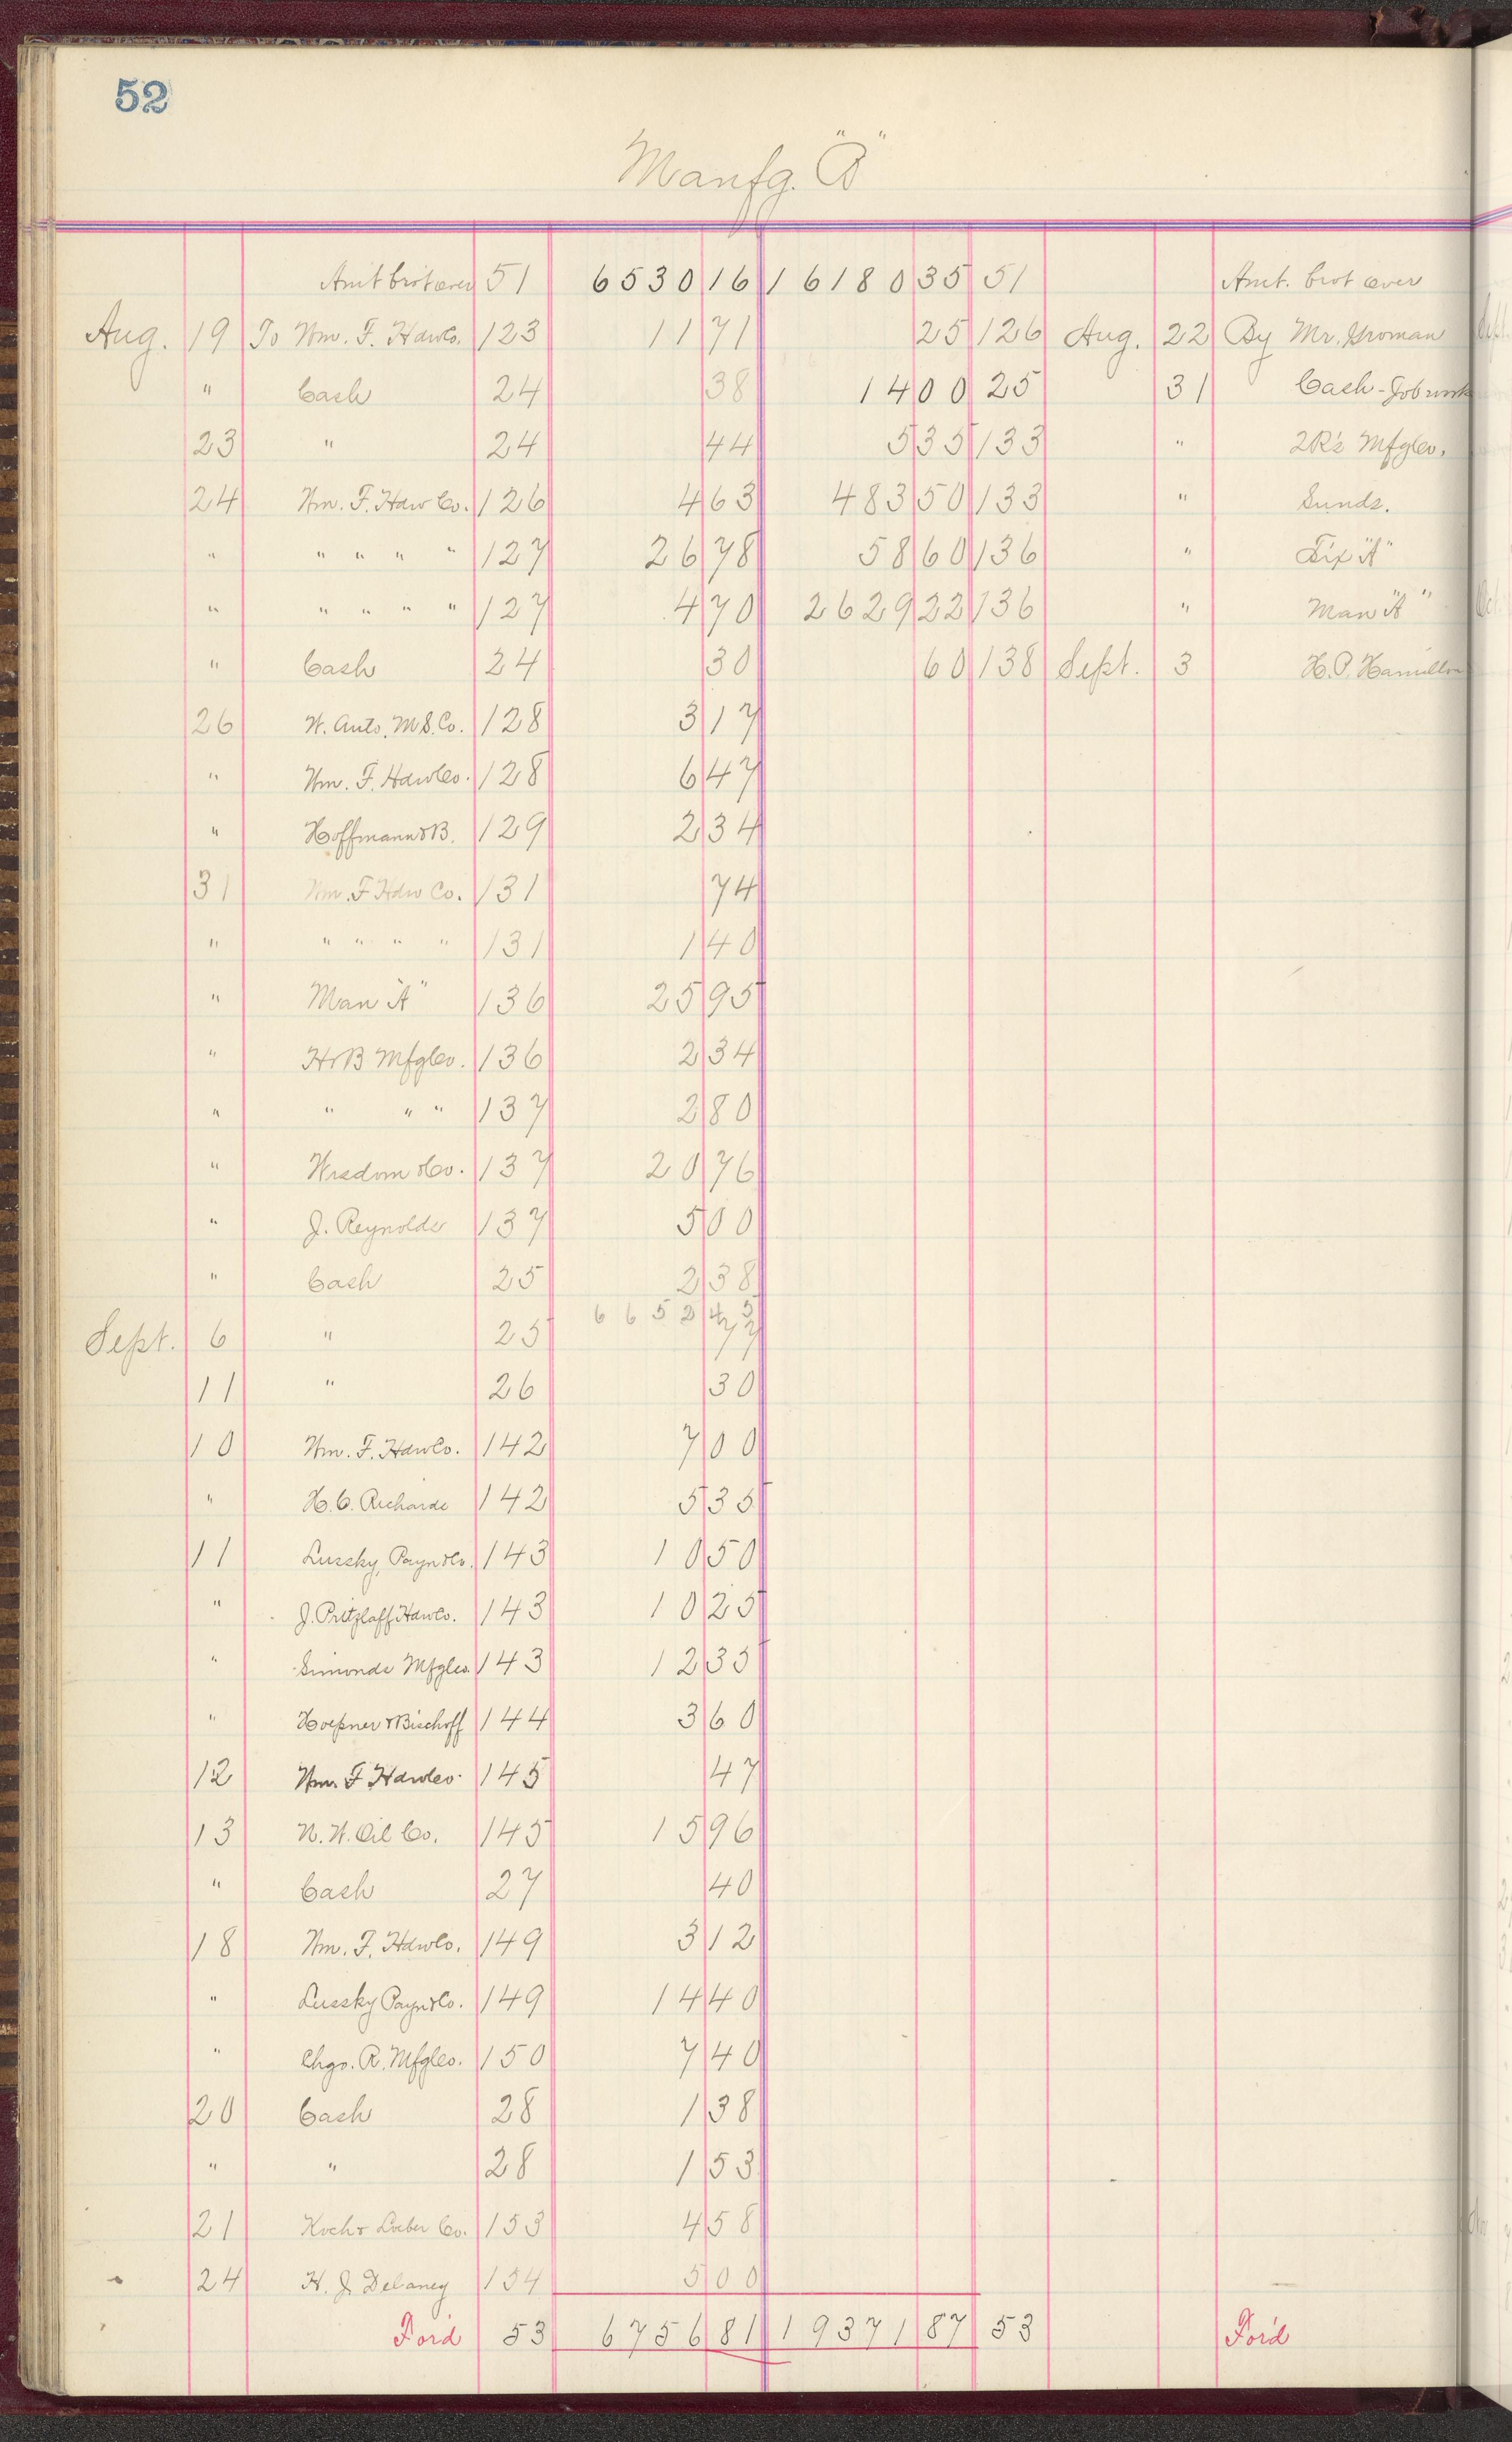 52
Manfg. "B"
Amt brot over 51 6530 16 16180 35 51 Amt. brot over
Aug. 19 To Wm. F. Hdw Co. 123 11 71 25 126 Aug. 22 By Mr. Groman
" Cash 24 38 14 00 25 31 Cash - Job work
23 " 24 44 5 35 133 " Mfg Co.
24 Wm. F. Hdw Co. 126 4 63 483 50 133 " Sunds.
" " " " " 127 26 78 58 60 136 " Fix "A"
" " " " " 127 4 70 2629 22 136 " Man "A"
" Cash 24 30 60 138 Sept. 3 H.P. Hamilton
26 W. Auto. M.S. Co. 128 3 17
" Wm. F. Hdw Co. 128 6 47
" Hoffmann & B. 129 2 34
31 Wm. F Hdw Co. 131 74
" " " " " 131 1 40
" Man "A" 136 25 95
" H & B Mfg Co. 136 2 34
" " " " 137 2 80
" Wisdom & Co. 137 20 76
" J. Reynolds 137 5 00
" Cash 25 2 38
6652 43
Sept. 6 " 25 77
11 " 26 30
10 Wm. F. Hdw Co. 142 7 00
" H. C. Richards 142 5 35
11 Lussky, Payn & Co. 143 10 50
" J. Pritzlaff Hdw Co. 143 10 25
" Simonds Mfg Co. 143 12 35
" Hoepner & Bischoff 144 3 60
12 Wm. F Hdw Co. 145 47
13 N. W. Oil Co. 145 15 96
" Cash 27 40
18 Wm. F. Hdw Co. 149 3 12
" Lussky Payn & Co. 149 14 40
" Chgo. R. Mfg Co. 150 7 40
20 Cash 28 1 38
" " 28 1 53
21 Koch & Loeber Co. 153 4 58
24 H. J. Delaney 154 5 00
For'd 53 6756 81 19371 87 53 For'd